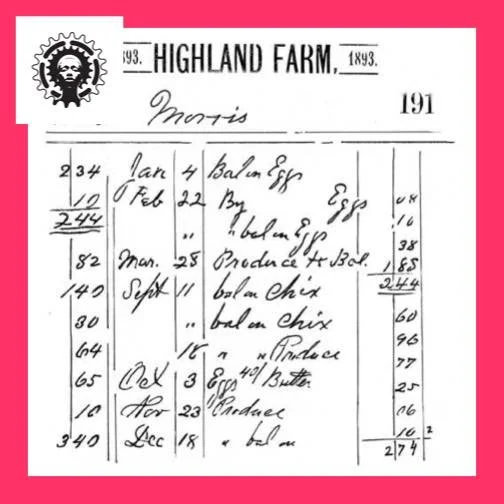 893. HIGHLAND FARM, 1893.
Morris 191
234 Jan 4 Bal on Eggs
10 Feb 22 By Eggs
244 " " bal on Eggs 10
38
82 Mar. 28 Produce to Bal. 1 85
140 Sept 11 bal on Chix 244
30 " bal on Chix 60
64 18 " " Produce 96
77
65 Oct 3 Eggs 40/ Butter 25
10 Nov 23 " Produce 16
340 Dec 18 " bal on 10 2
2 74